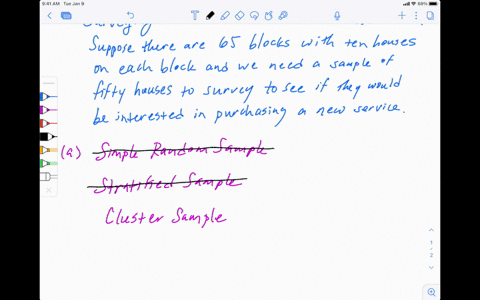 9:41 AM Tue Jan 9
89%
Suppose there are 65 blocks with ten houses
on each block and we need a sample of
fifty houses to survey to see if they would
be interested in purchasing a new service.
(a) Simple Random Sample
Stratified Sample
Cluster Sample
1
2